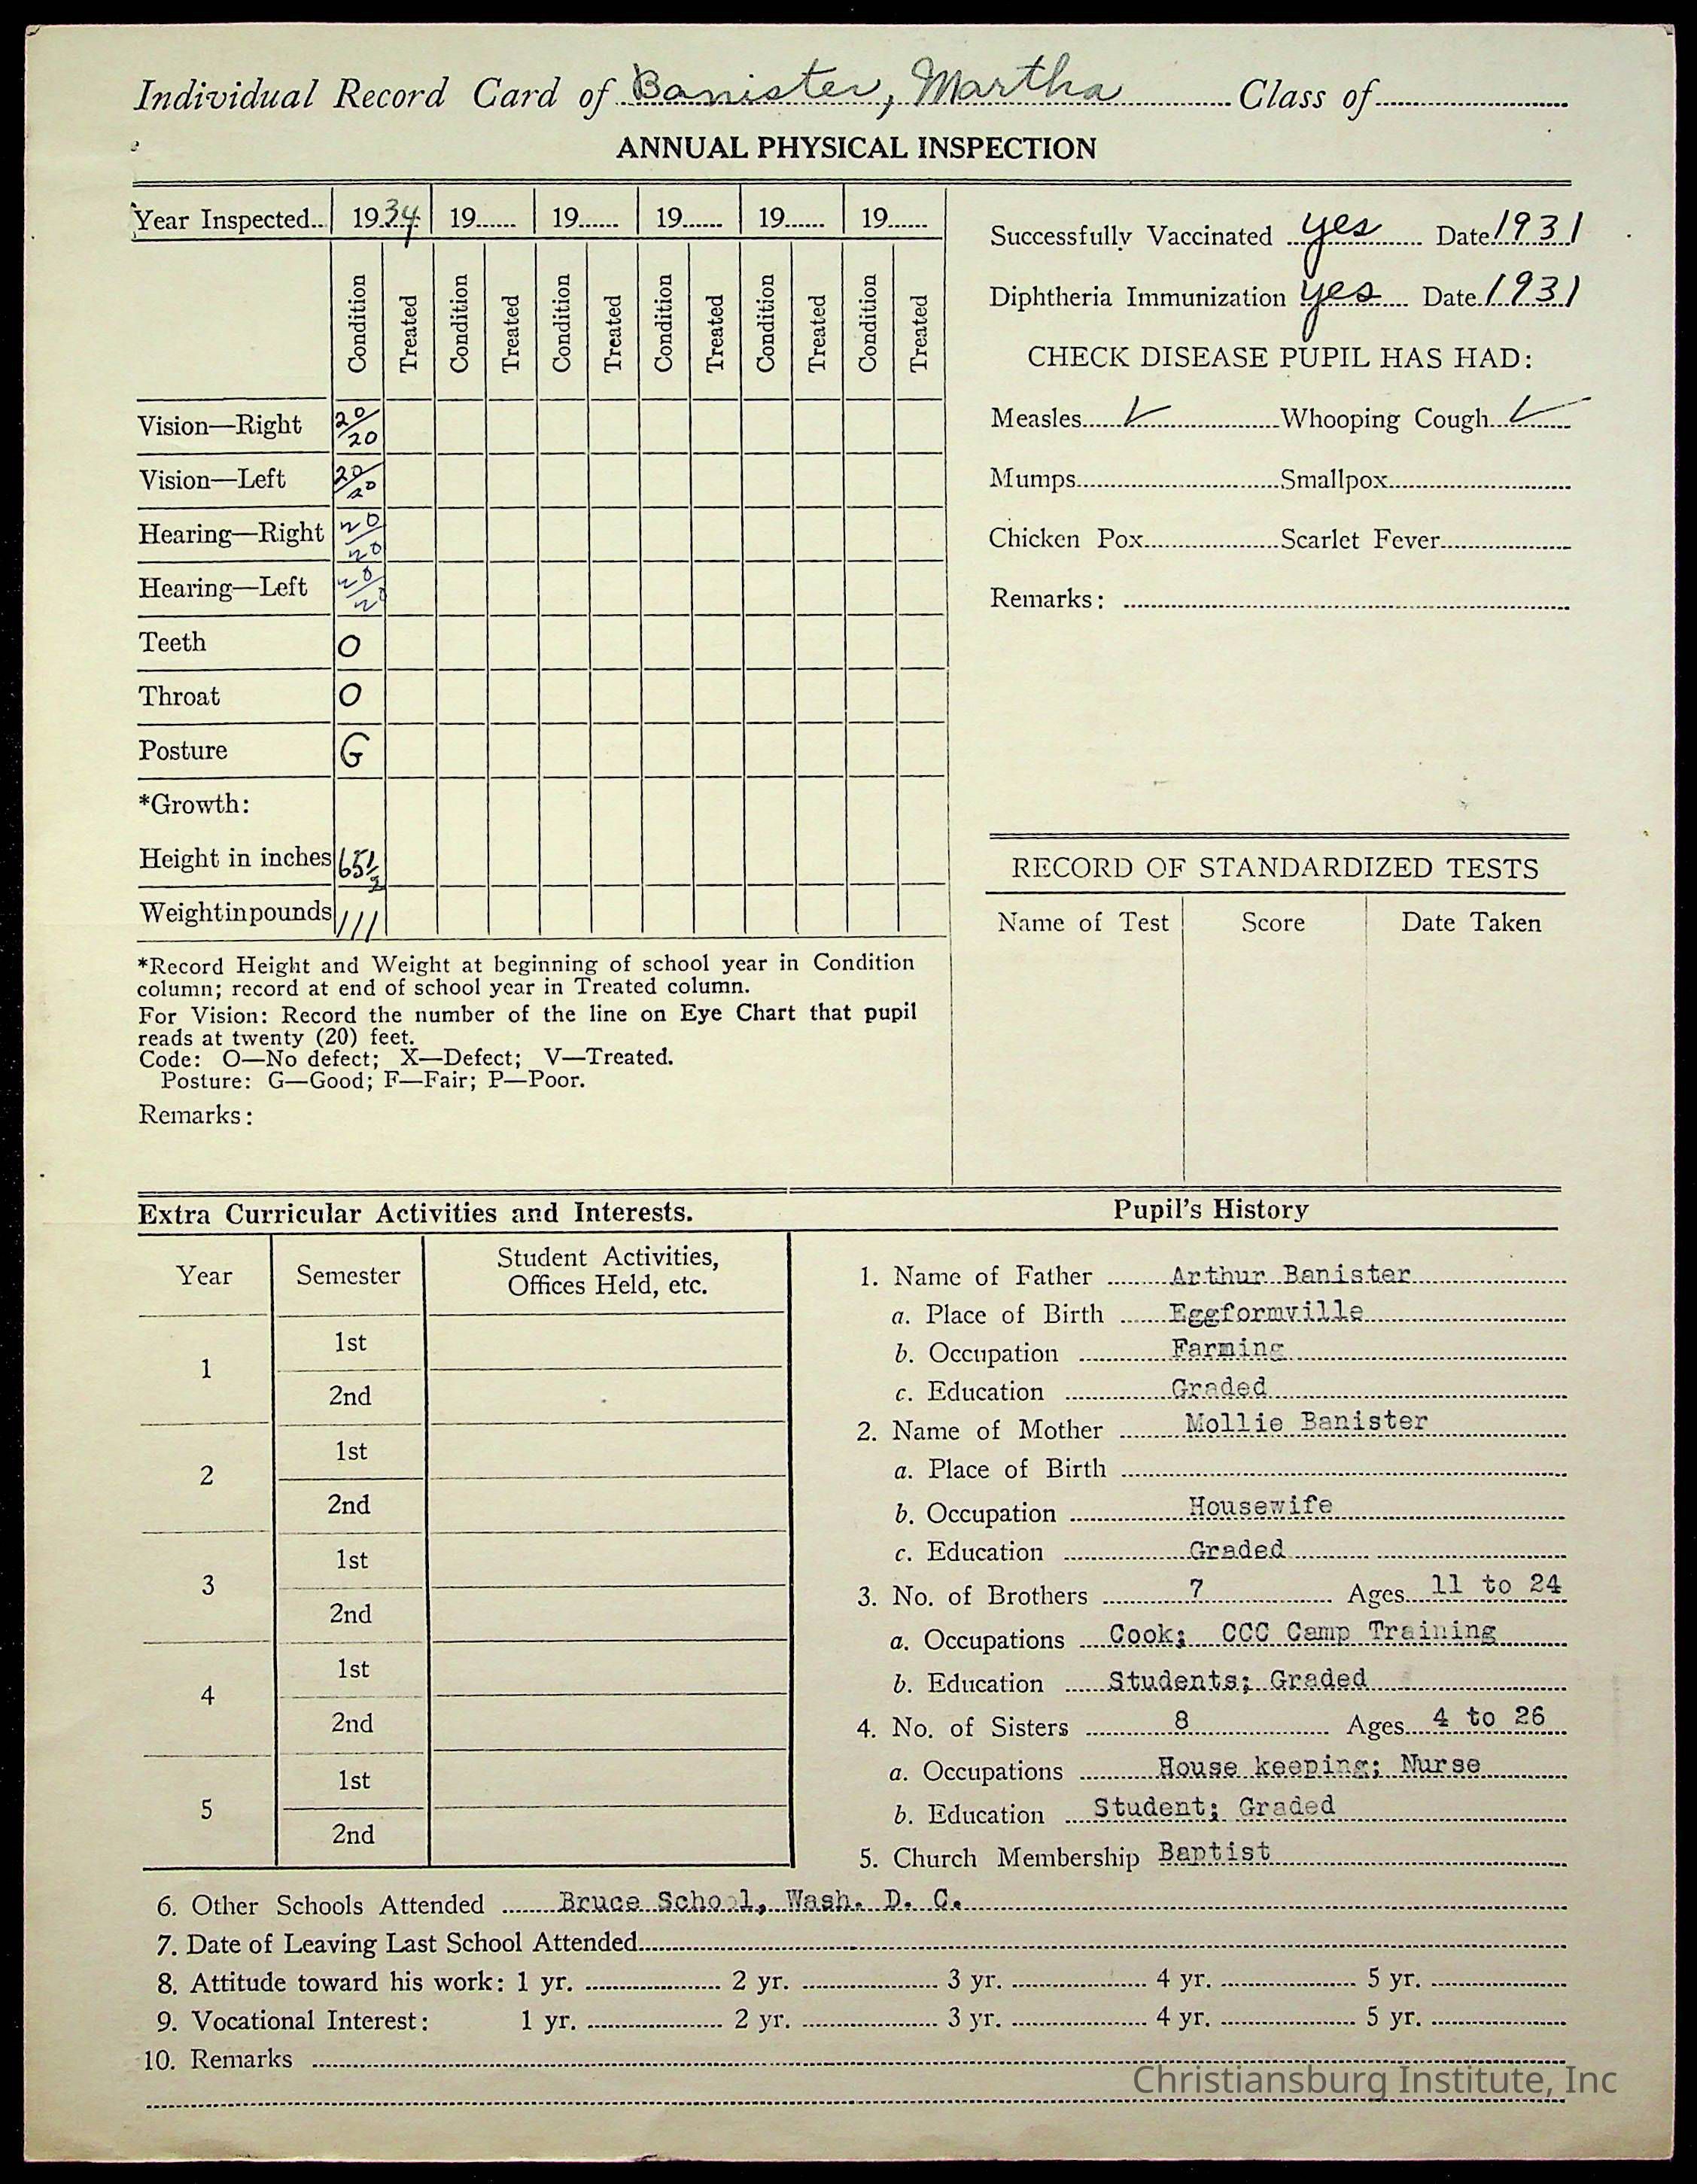 Individual Record Card of Banister, Martha Class of
ANNUAL PHYSICAL INSPECTION
Year Inspected.. 1934 19 19 19 19 19
Condition Treated Condition Treated Condition Treated Condition Treated Condition Treated Condition Treated
Vision—Right 20/20
Vision—Left 20/20
Hearing—Right 20/20
Hearing—Left 20/20
Teeth O
Throat O
Posture G
*Growth:
Height in inches 65 1/2
Weight in pounds 111
*Record Height and Weight at beginning of school year in Condition
column; record at end of school year in Treated column.
For Vision: Record the number of the line on Eye Chart that pupil
reads at twenty (20) feet.
Code: O—No defect; X—Defect; V—Treated.
Posture: G—Good; F—Fair; P—Poor.
Remarks:
Successfully Vaccinated yes Date 1931
Diphtheria Immunization yes Date 1931
CHECK DISEASE PUPIL HAS HAD:
Measles ✓ Whooping Cough ✓
Mumps Smallpox
Chicken Pox Scarlet Fever
Remarks:
RECORD OF STANDARDIZED TESTS
Name of Test Score Date Taken
Extra Curricular Activities and Interests.
Year Semester Student Activities,
Offices Held, etc.
1 1st
2nd
2 1st
2nd
3 1st
2nd
4 1st
2nd
5 1st
2nd
Pupil's History
1. Name of Father Arthur Banister
a. Place of Birth Eggformville
b. Occupation Farming
c. Education Graded
2. Name of Mother Mollie Banister
a. Place of Birth
b. Occupation Housewife
c. Education Graded
3. No. of Brothers 7 Ages 11 to 24
a. Occupations Cook; CCC Camp Training
b. Education Students; Graded
4. No. of Sisters 8 Ages 4 to 26
a. Occupations House keeping; Nurse
b. Education Student; Graded
5. Church Membership Baptist
6. Other Schools Attended Bruce School, Wash. D. C.
7. Date of Leaving Last School Attended
8. Attitude toward his work: 1 yr. 2 yr. 3 yr. 4 yr. 5 yr.
9. Vocational Interest: 1 yr. 2 yr. 3 yr. 4 yr. 5 yr.
10. Remarks
Christiansburg Institute, Inc